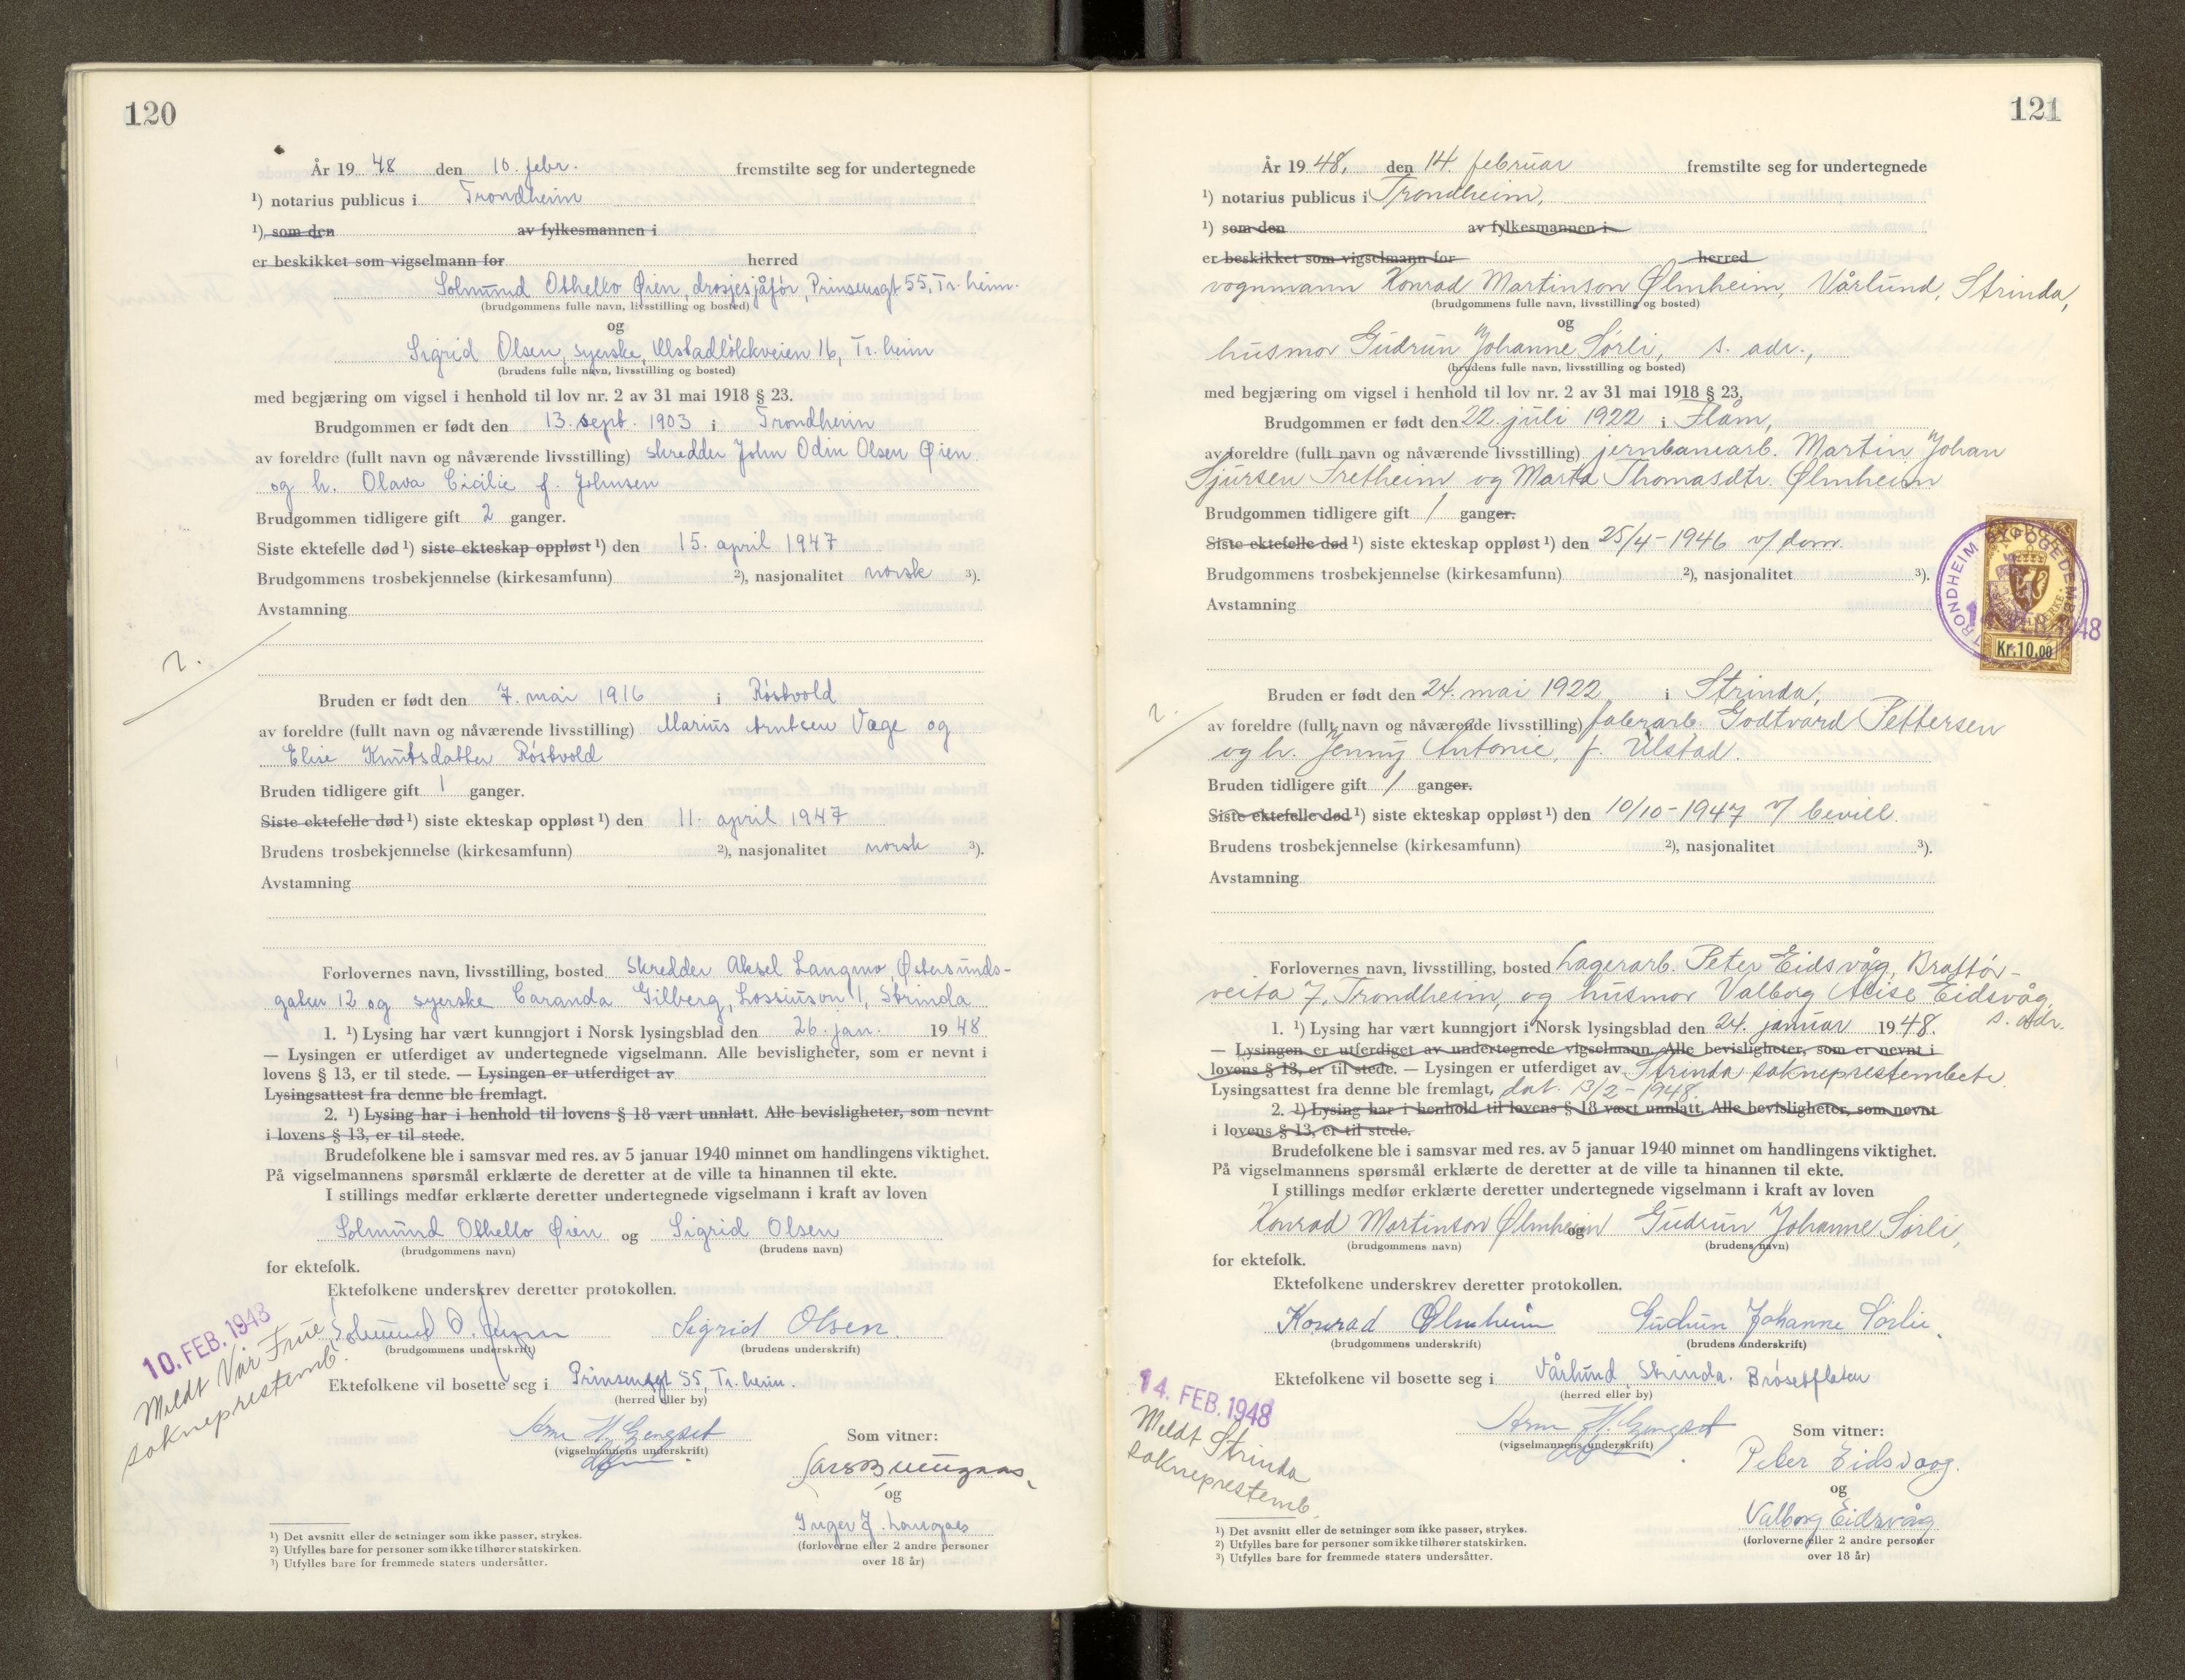 120
År 19 48 den 10. febr. fremstilte seg for undertegnede
¹) notarius publicus i Trondheim
¹) som den av fylkesmannen i
er beskikket som vigselmann for herred
Solmund Othello Øien, drosjesjåfør, Prinsensgt 55, Tr.heim.
(brudgommens fulle navn, livsstilling og bosted)
og
Sigrid Olsen, syerske, Ulstadløkkveien 16, Tr.heim
(brudens fulle navn, livsstilling og bosted)
med begjæring om vigsel i henhold til lov nr. 2 av 31 mai 1918 § 23.
Brudgommen er født den 13. sept. 1903 i Trondheim
av foreldre (fullt navn og nåværende livsstilling) skredder John Odin Olsen Øien
og h. Olava Cicilie f. Johnsen
Brudgommen tidligere gift 2 ganger.
Siste ektefelle død ¹) siste ekteskap oppløst ¹) den 15. april 1947
Brudgommens trosbekjennelse (kirkesamfunn) ²), nasjonalitet norsk ³).
Avstamning
Bruden er født den 7. mai 1916 i Røstvold
av foreldre (fullt navn og nåværende livsstilling) Marius Arntsen Væge og
Elise Knutsdatter Røstvold
Bruden tidligere gift 1 ganger.
Siste ektefelle død ¹) siste ekteskap oppløst ¹) den 11. april 1947
Brudens trosbekjennelse (kirkesamfunn) ²), nasjonalitet norsk ³).
Avstamning
Forlovernes navn, livsstilling, bosted Skredder Aksel Langmo, Østersunds-
gaten 12 og syerske Caranda Gilberg, Lossiusvn 1, Strinda
1. ¹) Lysing har vært kunngjort i Norsk lysingsblad den 26. jan. 19 48
— Lysingen er utferdiget av undertegnede vigselmann. Alle bevisligheter, som er nevnt i
lovens § 13, er til stede. — Lysingen er utferdiget av
Lysingsattest fra denne ble fremlagt.
2. ¹) Lysing har i henhold til lovens § 18 vært unnlatt. Alle bevisligheter, som nevnt
i lovens § 13, er til stede.
Brudefolkene ble i samsvar med res. av 5 januar 1940 minnet om handlingens viktighet.
På vigselmannens spørsmål erklærte de deretter at de ville ta hinannen til ekte.
I stillings medfør erklærte deretter undertegnede vigselmann i kraft av loven
Solmund Othello Øien og Sigrid Olsen
(brudgommens navn) (brudens navn)
for ektefolk.
Ektefolkene underskrev deretter protokollen.
Solmund O. Sigrid Olsen.
(brudgommens underskrift) (brudens underskrift)
10. FEB. 1948
Meldt Vår Frue
sokneprestemb.
Ektefolkene vil bosette seg i Prinsensgt 55, Tr.heim.
(herred eller by)
(vigselmannens underskrift)
Som vitner:
og
Inger J. Langaas
(forloverne eller 2 andre personer
over 18 år)
¹) Det avsnitt eller de setninger som ikke passer, strykes.
²) Utfylles bare for personer som ikke tilhører statskirken.
³) Utfylles bare for fremmede staters undersåtter.
121
År 19 48, den 14. februar fremstilte seg for undertegnede
¹) notarius publicus i Trondheim,
¹) som den av fylkesmannen i
er beskikket som vigselmann for herred
vognmann Konrad Martinson Ølmheim, Vårlund, Strinda,
(brudgommens fulle navn, livsstilling og bosted)
og
husmor Gudrun Johanne Sørli, s. adr.,
(brudens fulle navn, livsstilling og bosted)
med begjæring om vigsel i henhold til lov nr. 2 av 31 mai 1918 § 23.
Brudgommen er født den 22. juli 1922 i Flåm,
av foreldre (fullt navn og nåværende livsstilling) jernbanearb. Martin Johan
Sjursen Fretheim og Marta Thomasdtr. Ølmheim
Brudgommen tidligere gift 1 ganger.
Siste ektefelle død ¹) siste ekteskap oppløst ¹) den 25/4-1946 v/ dom.
Brudgommens trosbekjennelse (kirkesamfunn) ²), nasjonalitet ³).
Avstamning
TRONDHEIM BYFOGEDEMBE
1948
Kr. 10.00
Bruden er født den 24. mai 1922 i Strinda,
av foreldre (fullt navn og nåværende livsstilling) Godtvard Pettersen
og h. Jenny Antonie, f. Ulstad.
Bruden tidligere gift 1 ganger.
Siste ektefelle død ¹) siste ekteskap oppløst ¹) den 10/10-1947 v/ bevill.
Brudens trosbekjennelse (kirkesamfunn) ²), nasjonalitet ³).
Avstamning
Forlovernes navn, livsstilling, bosted Lagerarb. Peter Eidsvåg, Brattør-
veita 7, Trondheim, og husmor Valborg Alise Eidsvåg,
s. adr.
1. ¹) Lysing har vært kunngjort i Norsk lysingsblad den 24. januar 19 48.
— Lysingen er utferdiget av undertegnede vigselmann. Alle bevisligheter, som er nevnt i
lovens § 13, er til stede. — Lysingen er utferdiget av Strinda sokneprestembete
Lysingsattest fra denne ble fremlagt, dat. 13/2-1948.
2. ¹) Lysing har i henhold til lovens § 18 vært unnlatt. Alle bevisligheter, som nevnt
i lovens § 13, er til stede.
Brudefolkene ble i samsvar med res. av 5 januar 1940 minnet om handlingens viktighet.
På vigselmannens spørsmål erklærte de deretter at de ville ta hinannen til ekte.
I stillings medfør erklærte deretter undertegnede vigselmann i kraft av loven
Konrad Martinson Ølmheim og Gudrun Johanne Sørli,
(brudgommens navn) (brudens navn)
for ektefolk.
Ektefolkene underskrev deretter protokollen.
Konrad Ølmheim Gudrun Johanne Sørli.
(brudgommens underskrift) (brudens underskrift)
Ektefolkene vil bosette seg i Vårlund, Strinda. Brøsetflaten
(herred eller by)
14. FEB. 1948
Meldt Strinda
sokneprestemb.
(vigselmannens underskrift)
Som vitner:
Peter Eidsvaag.
og
Valborg Eidsvåg
(forloverne eller 2 andre personer
over 18 år)
¹) Det avsnitt eller de setninger som ikke passer, strykes.
²) Utfylles bare for personer som ikke tilhører statskirken.
³) Utfylles bare for fremmede staters undersåtter.